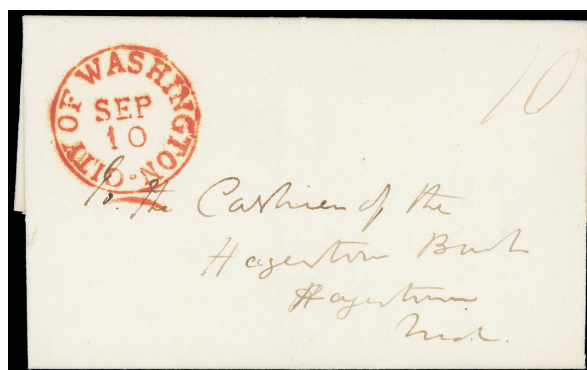 CITY OF WASHINGTON
SEP
10
10
To. the Cashier of the
Hagerstown Bank
Hagerstown
Md.